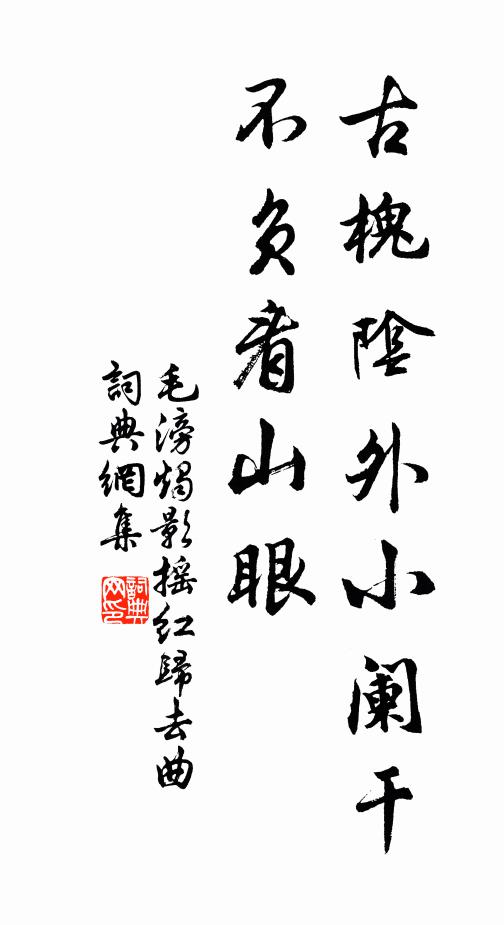 古槐陰外小闌干
不負看山眼
毛滂燭影搖紅歸去曲
詞典網集
詞典网印